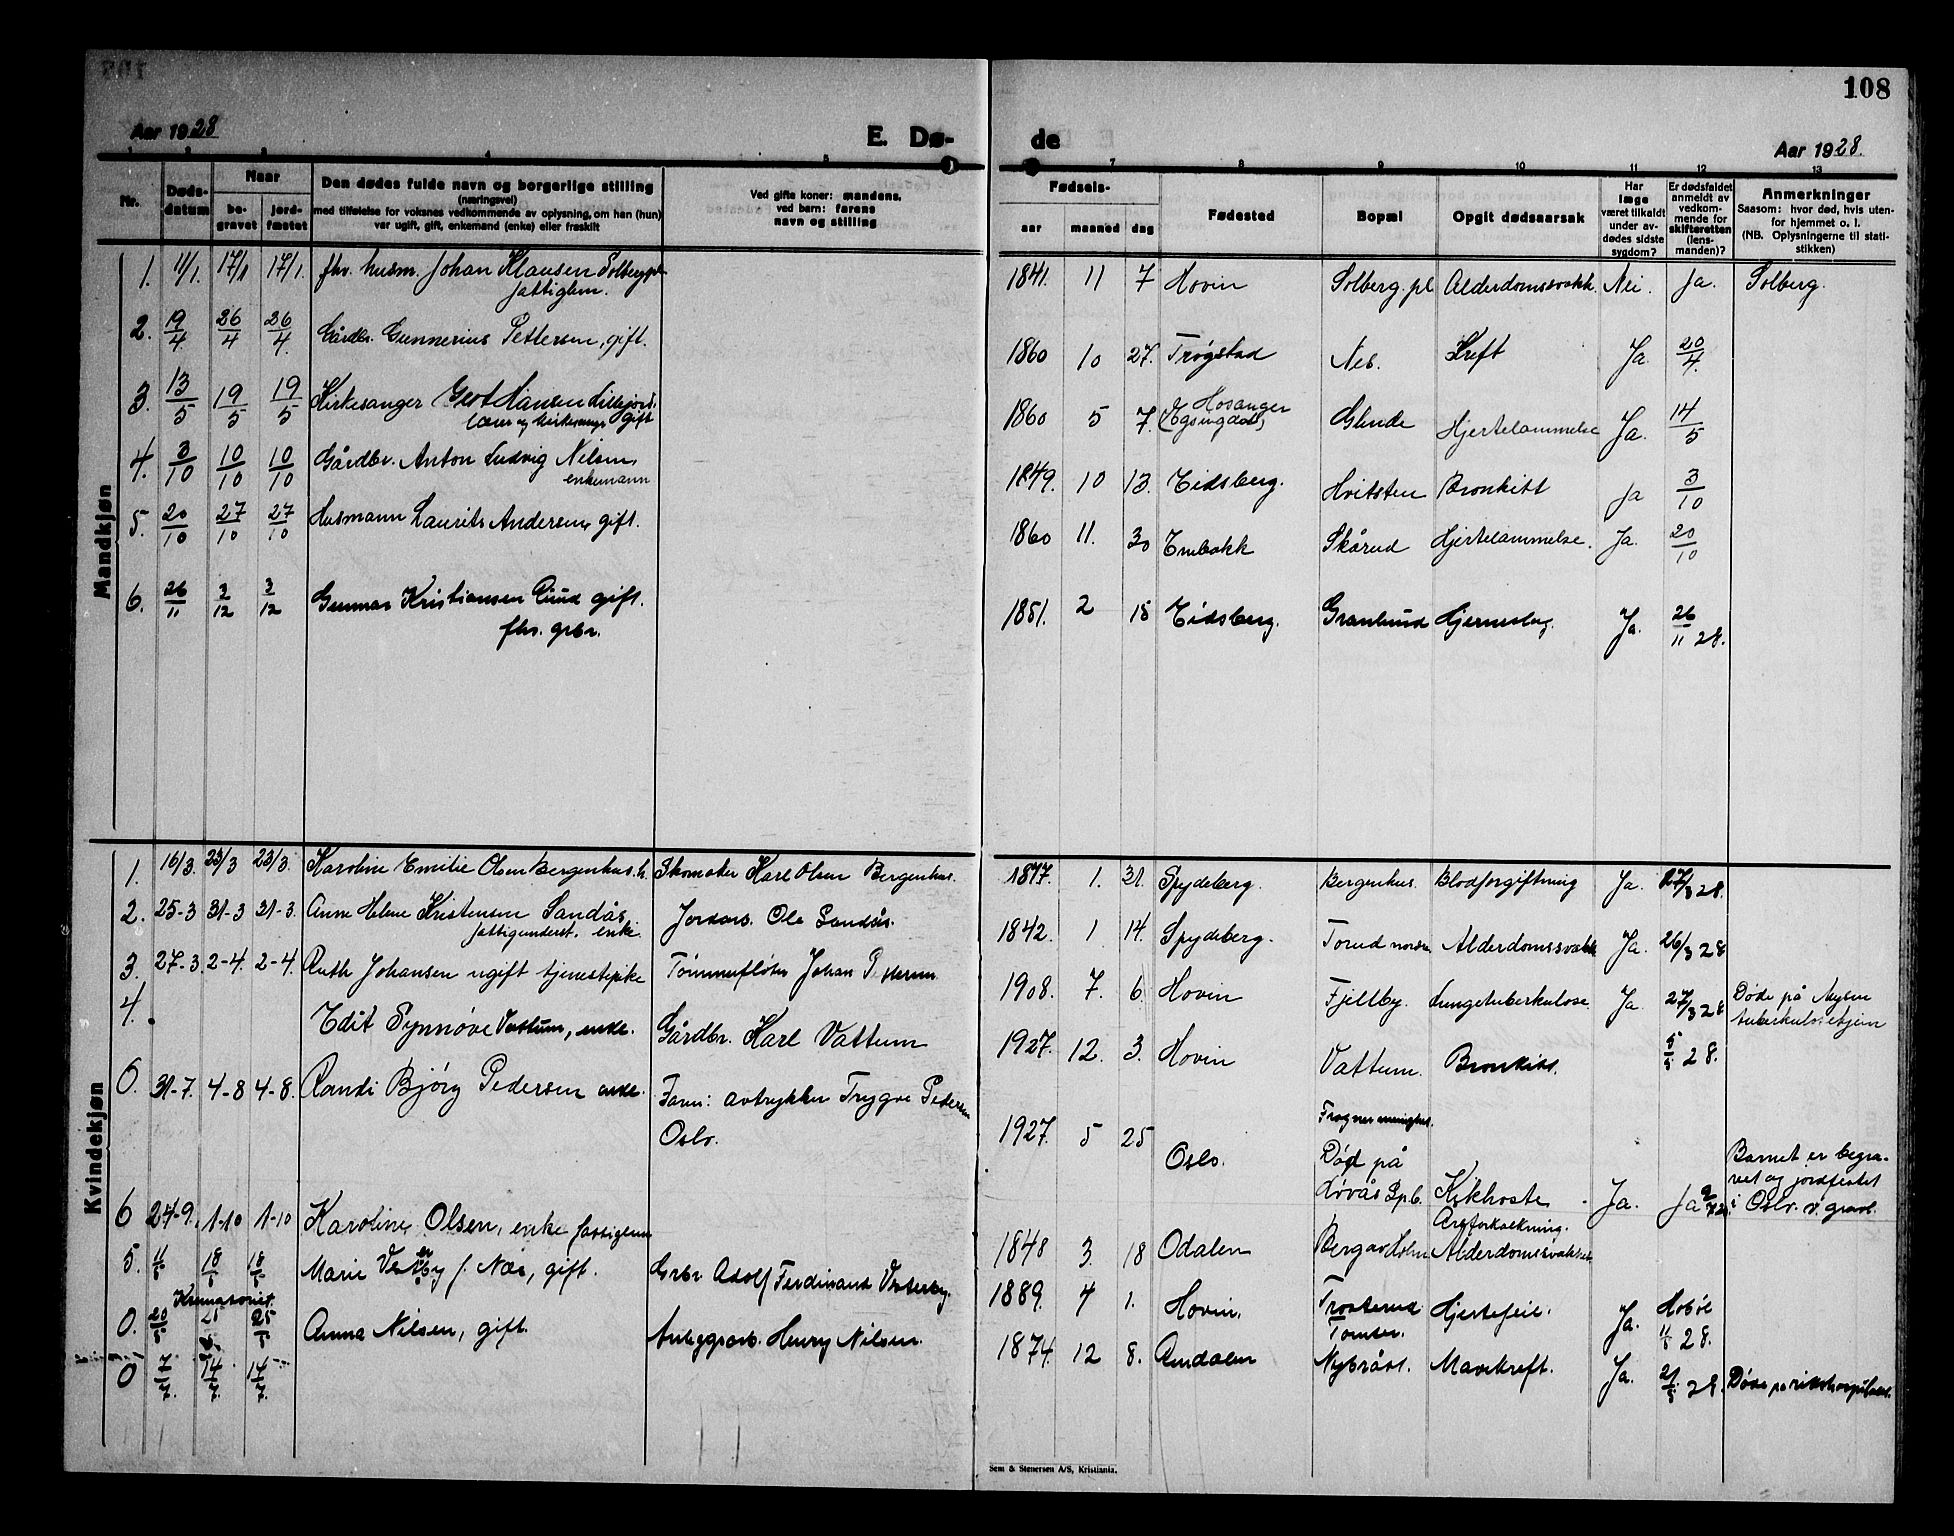 108
Aar 1928
E. Dø-
de
Aar 1928.
Nr.
Døds-
datum
Naar
be-
gravet
jord-
fæstet
Den dødes fulde navn og borgerlige stilling
(næringsvei)
med tilføielse for voksnes vedkommende av oplysning, om han (hun)
var ugift, gift, enkemand (enke) eller fraskilt
Ved gifte koner: mandens,
ved børn: farens
navn og stilling
Fødsels-
aar maaned dag
Fødested
Bopæl
Opgit dødsaarsak
Har
læge
været tilkaldt
under av-
dødes sidste
sygdom?
Er dødsfaldet
anmeldt av
vedkom-
mende for
skifteretten
(lens-
manden)?
Anmerkninger
Saasom: hvor død, hvis uten-
for hjemmet o. l.
(NB. Oplysningerne til stati-
stikken)
Mandkjøn
1. 11/1. 17/1 17/1. fhv. husm. Johan Klausen Solbergpl.
fattiglem.
1841. 11 7 Hovin Solberg.pl Alderdomssvakh. Nei. Ja. Solberg.
2. 19/4 26/4 26/4. Gårdbr. Gunnerius Pettersen, gift.
1860 10 27. Trøgstad Nes. Kreft Ja. 20/4.
3. 13/5 19/5 19/5 Kirkesanger Gert Hansen Lillejord.
lærer og kirkesanger gift
1860 5 7. Hosanger
Glende Hjertelammelse Ja. 14/5
4. 3/10 10/10 10/10 Gårdbr. Anton Ludvig Nilsen,
enkemann
1849. 10 13. Eidsberg. Hvitsten Bronkitt Ja 3/10
5. 20/10 27/10 27/10 Husmann Laurits Andersen, gift.
1860 11. 30 Enebakk Skårud Hjertelammelse. Ja. 20/10
6. 26/11 3/12 3/12 Gunnar Kristiansen Ruud gift.
fhv. grbr.
1851. 2 18 Eidsberg. Granlund Hjerneslag. Ja. 26/11 28.
Kvindekjøn
1. 16/3. 23/3 23/3. Karoline Emilie Olsen Bergenhus. h. Skomaker Karl Olsen Bergenhus.
1877. 1. 31. Spydeberg. Bergenhus. Blodforgiftning Ja. 17/3 28.
2. 25-3 31-3 31-3. Anne Helene Kristensen Sandås,
fattigunderst. enke. Jordarb. Ole Sandås.
1842. 1 14. Spydeberg. Torud nordre Alderdomssvakh Ja. 26/3 28
3. 27-3. 2-4. 2-4. Ruth Johansen ugift tjenestepike Tømmerfløter Johan Pettersen
1908. 7. 6. Hovin Fjellby. Lungetuberkulose Ja. 27/3 28 Døde på Mysen
tuberkulosehjem
4. Edit Synnøve Vattum, Gårdbr. Karl Vattum
1927. 12. 3. Hovin Vattum. Bronkitt. 5/5 28.
0. 31-7. 4-8 4-8. Randi Bjørg Pedersen Faren: avtrykker Trygve Pedersen
Oslo.
1927. 5 25 Oslo. Frogner menighet.
Død på
Løvås Spb. Kikhoste Ja. Ja
Barnet er begra-
vet og jordfestet
i Oslo. v. gravl.
6 24-9. 1-10 1-10 Karoline Olsen, enke fattiglem
1848 3. 18 Odalen Bergar Holm Åreforkalkning.
Alderdomssvakhet
5. 11/5 18/5 18/5 Marie Vesterby f. Næs, gift. Grbr Adolf Ferdinand Vesterby.
1889. 4 1. Hovin. Trosterud Hjertefeil. Ja. Hobøl
Tomter. 11/5 28.
Kremasonist.
0. 20/5 25 25/5 Anna Nilsen, gift. Anleggsarb. Henry Nilsen.
1874. 12 8. Arndalen Nybråtl. Mavekreft. Ja. 21/5 28. Døde på rikshospitalet.
0 7/7. 14/7. 14/7.
Sem & Stenersen A/S, Kristiania.